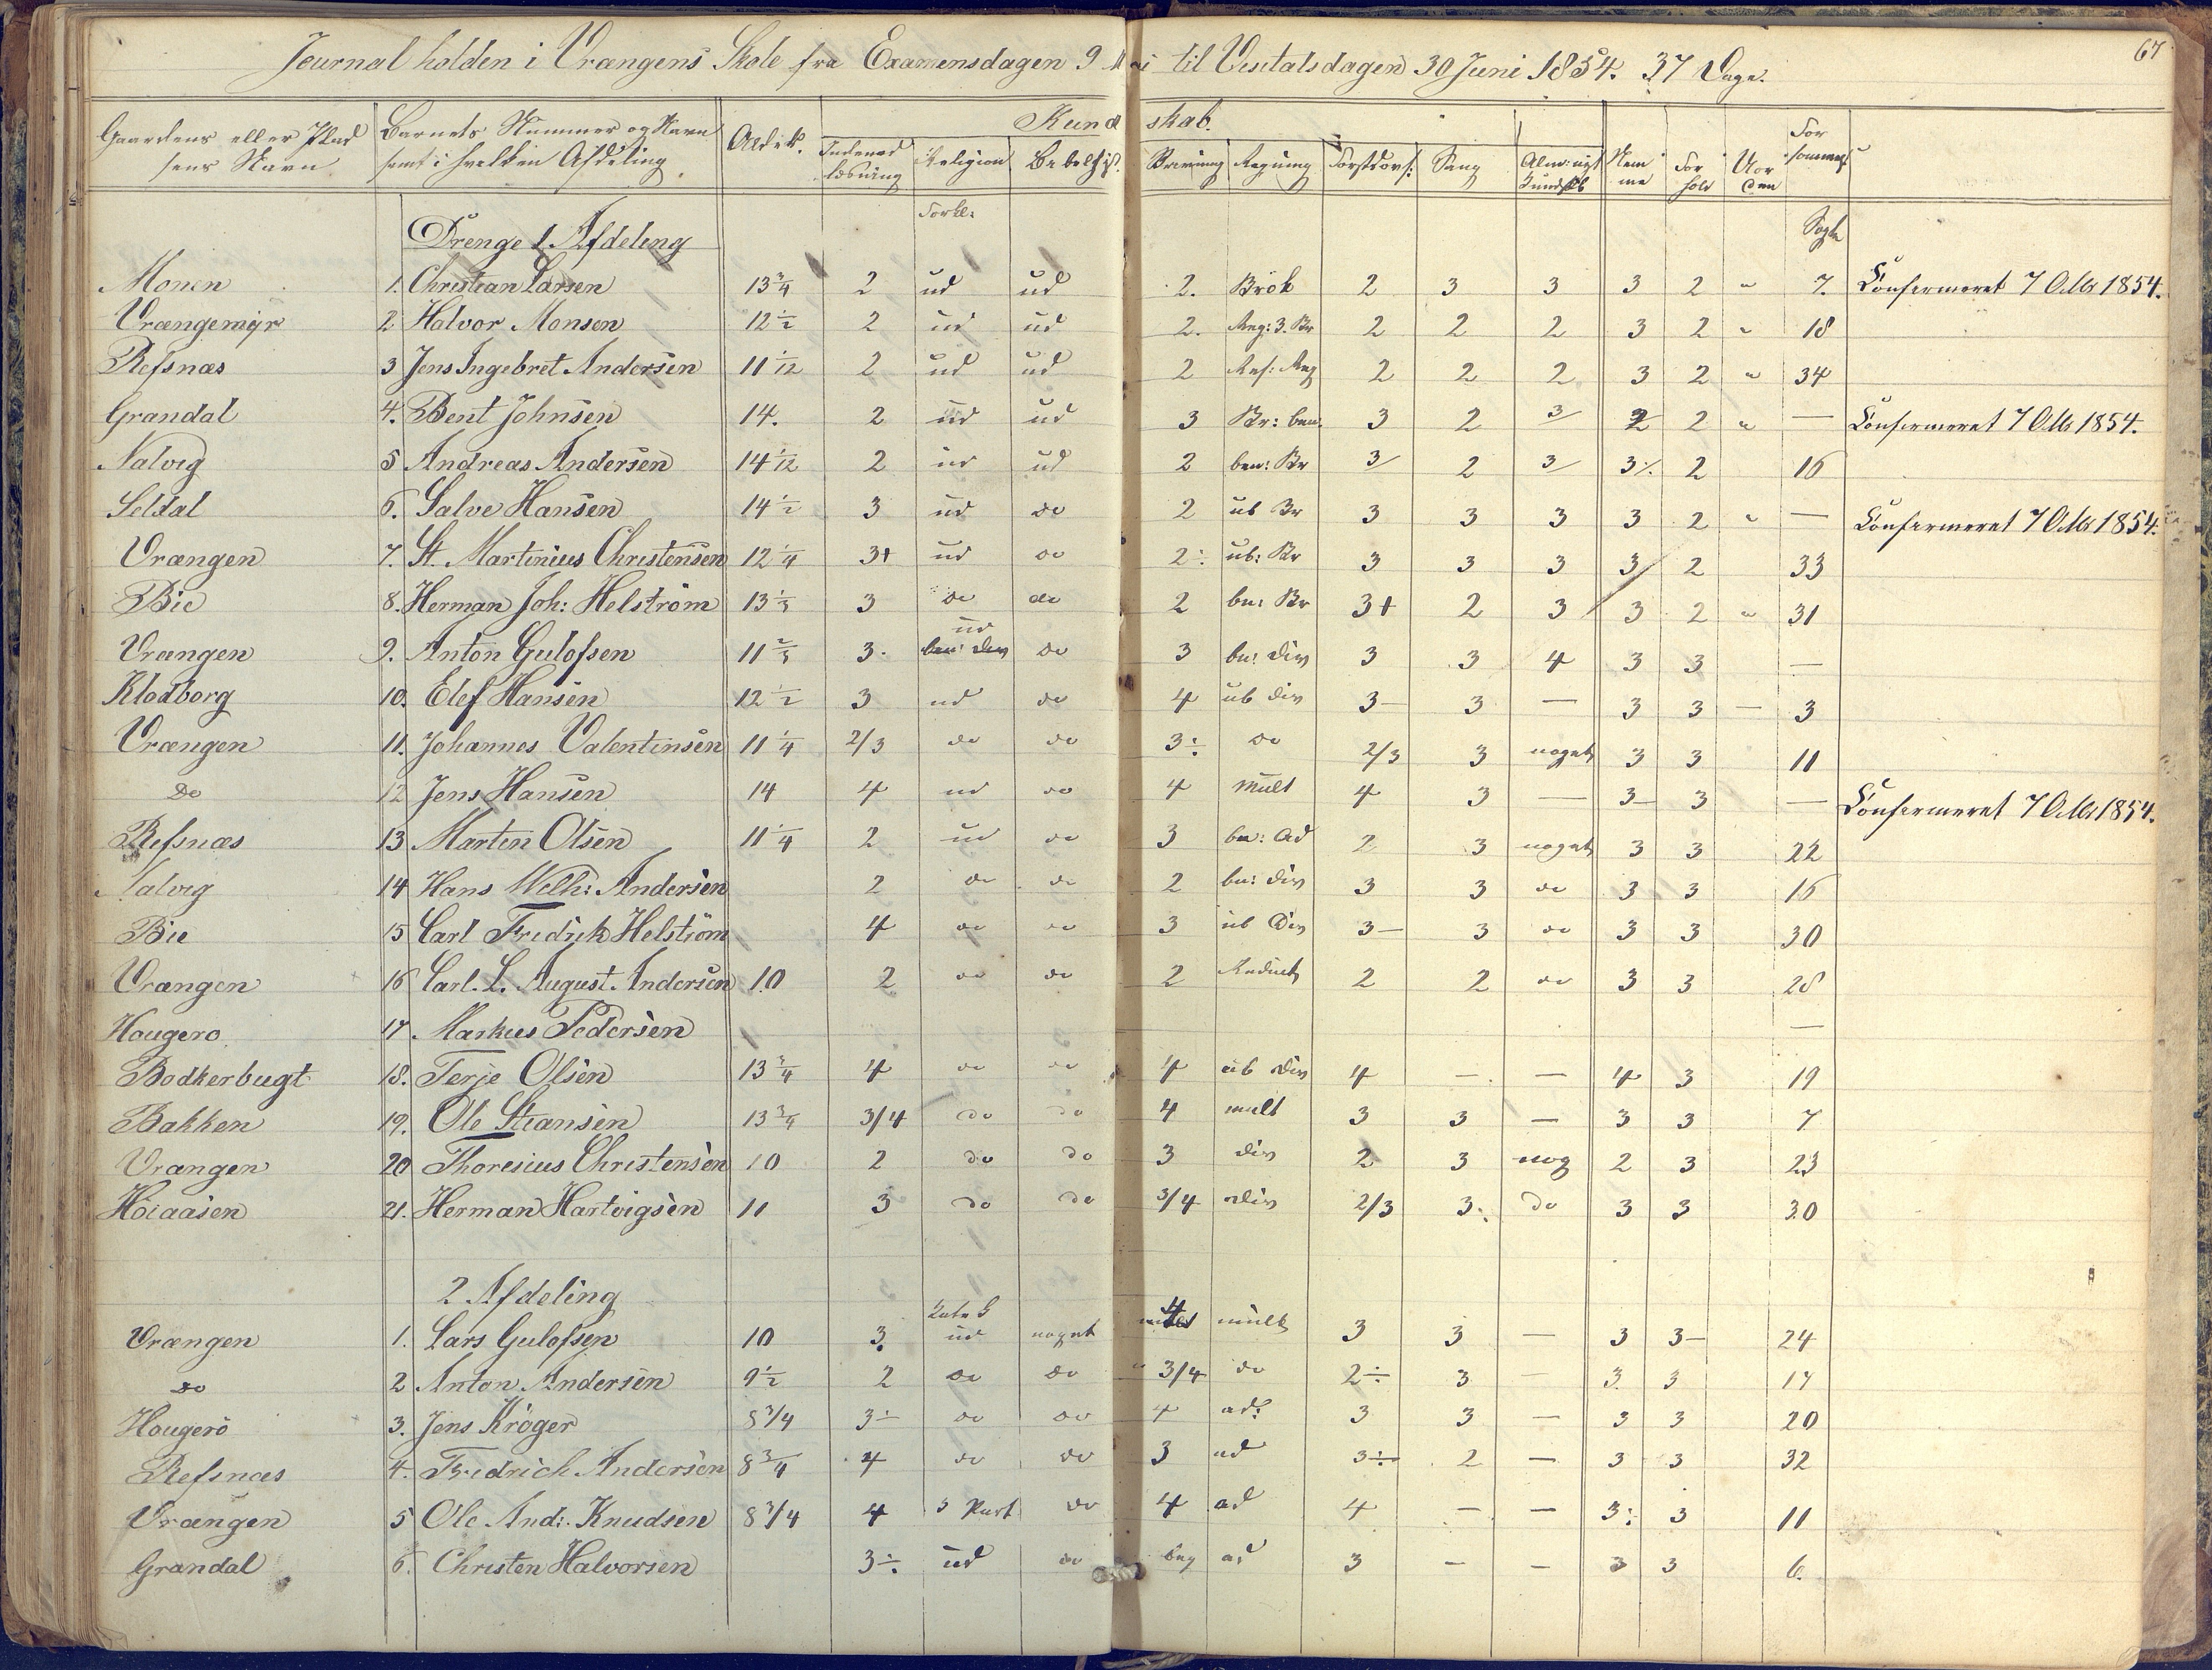 67
Journal holden i Vrængens Skole fra Examensdagen 9 Mai til Visitatsdagen 30 Juni 1854. 37 Dage.
Gaardens eller Pladsens Navn | Barnets Nummer og Navn samt i hvilken Afdeling | Alder. | Kundskab.
Indenadlæsning | Religion | Bibelhist. | Skrivning | Regning | Sang | Nemme | Forhold | Uorden | Forsømmelse
Forkl:
Drenge 1. Afdeling | Dage
Monen 1. Christian Larsen 13 3/4 2 ud ud 2. Brök 2 3 3 3 2 " 7. Confirmeret 7 Octbr 1854.
Vrængemyr 2 Halvor Monsen 12 1/2 2 ud ud 2. Reg: 3. Br 2 2 2 3 2 " 18
Refsnæs 3 Jens Ingebret Andersen 11 1/12 2 ud ud 2 2 2 2 3 2 " 34
Grandal 4. Bent Johnsen 14. 2 ud ud 3 Br: ben. 3 2 3 2 2 " — Confirmeret 7 Octbr 1854.
Nalvig 5 Andreas Andersen 14 1/12 2 ud ud 2 ben: Br 3 2 3 3 2 16
Seldal 6. Salve Hansen 14 1/2 3 ud do 2 ub Br 3 3 3 3 2 " — Confirmeret 7 Octbr 1854.
Vrængen 7. St. Martinius Christensen 12 1/4 3+ ud do 2÷ ub: Br 3 3 3 3 2 33
Bie 8. Herman Joh: Helström 13 1/3 3 do do 2 bn: Br 3+ 2 3 3 2 " 31
Vrængen 9. Anton Gulofsen 11 2/3 3. ud do 3 bn: Div 3 3 4 3 3 —
Klodborg 10. Elef Hansen 12 1/2 3 ud do 4 ub Div 3— 3 — 3 3 — 3
Vrængen 11. Johannes Valentinsen 11 1/4 2/3 do do 3÷ do 2/3 3 noget 3 3 11
Do 12 Jens Hansen 14 4 ud do 4 Mult 4 3 — 3— 3 — Confirmeret 7 Octbr 1854.
Refsnæs 13 Martin Olsen 11 1/4 2 ud do 3 bn: ad 2 3 noget 3 3 22
Nalvig 14 Hans Wilh: Andersen 2 do do 2 bn: Div 3 3 do 3 3 16
Bie 15 Carl Fredrik Helström 4 do do 3 ub Div 3— 3 do 3 3 30
Vrængen 16 Carl. L. August. Andersen 10 2 do do 2 Reduct 2 2 do 3 3 28
Hougerö 17. Markus Pedersen —
Bödkerbugt 18. Terje Olsen 13 3/4 4 do do 4 ub Div 4 — — 4 3 19
Bakken 19. Ole Stiansen 13 3/4 3/4 do do 4 mult 3 3 — 3 3 7
Vrængen 20 Thoresius Christensen 10 2 do do 3 Div 2 3 nog 2 3 23
Höiaasen 21. Herman Hartvigsen 11 3 do do 3/4 Div 2/3 3: do 3 3 30
2 Afdeling
Vrængen 1. Lars Gulofsen 10 3. ud noget 4 mult 3 3 — 3 3— 24
do 2 Anton Andersen 9 1/2 2 do do 3/4 do 2÷ 3 — 3. 3 17
Hougerö 3. Jens Kröger 8 3/4 3÷ do do 4 ad: 3 3 — 3 3 20
Refsnæs 4. Fredrich Andersen 8 3/4 4 do do 3 ad 3÷ 2 — 3 3 32
Vrængen 5 Ole And: Knudsen 8 3/4 4 3 Part do 4 ad 4 — — 3: 3 11
Grandal 6. Christen Halvorsen 3÷ ud do beg ad 3 — — 3 3 6.